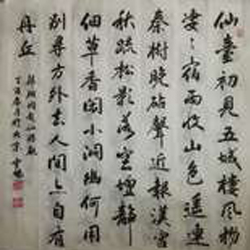 仙臺初見五城樓風物
淒淒宿雨收山色遥連
秦樹晚砧聲近報漢宮
秋疏松影落空壇靜
細草香閑小洞幽何用
别尋方外去人間亦自有
丹丘
韓翃同題仙游觀
丁酉春月於北京